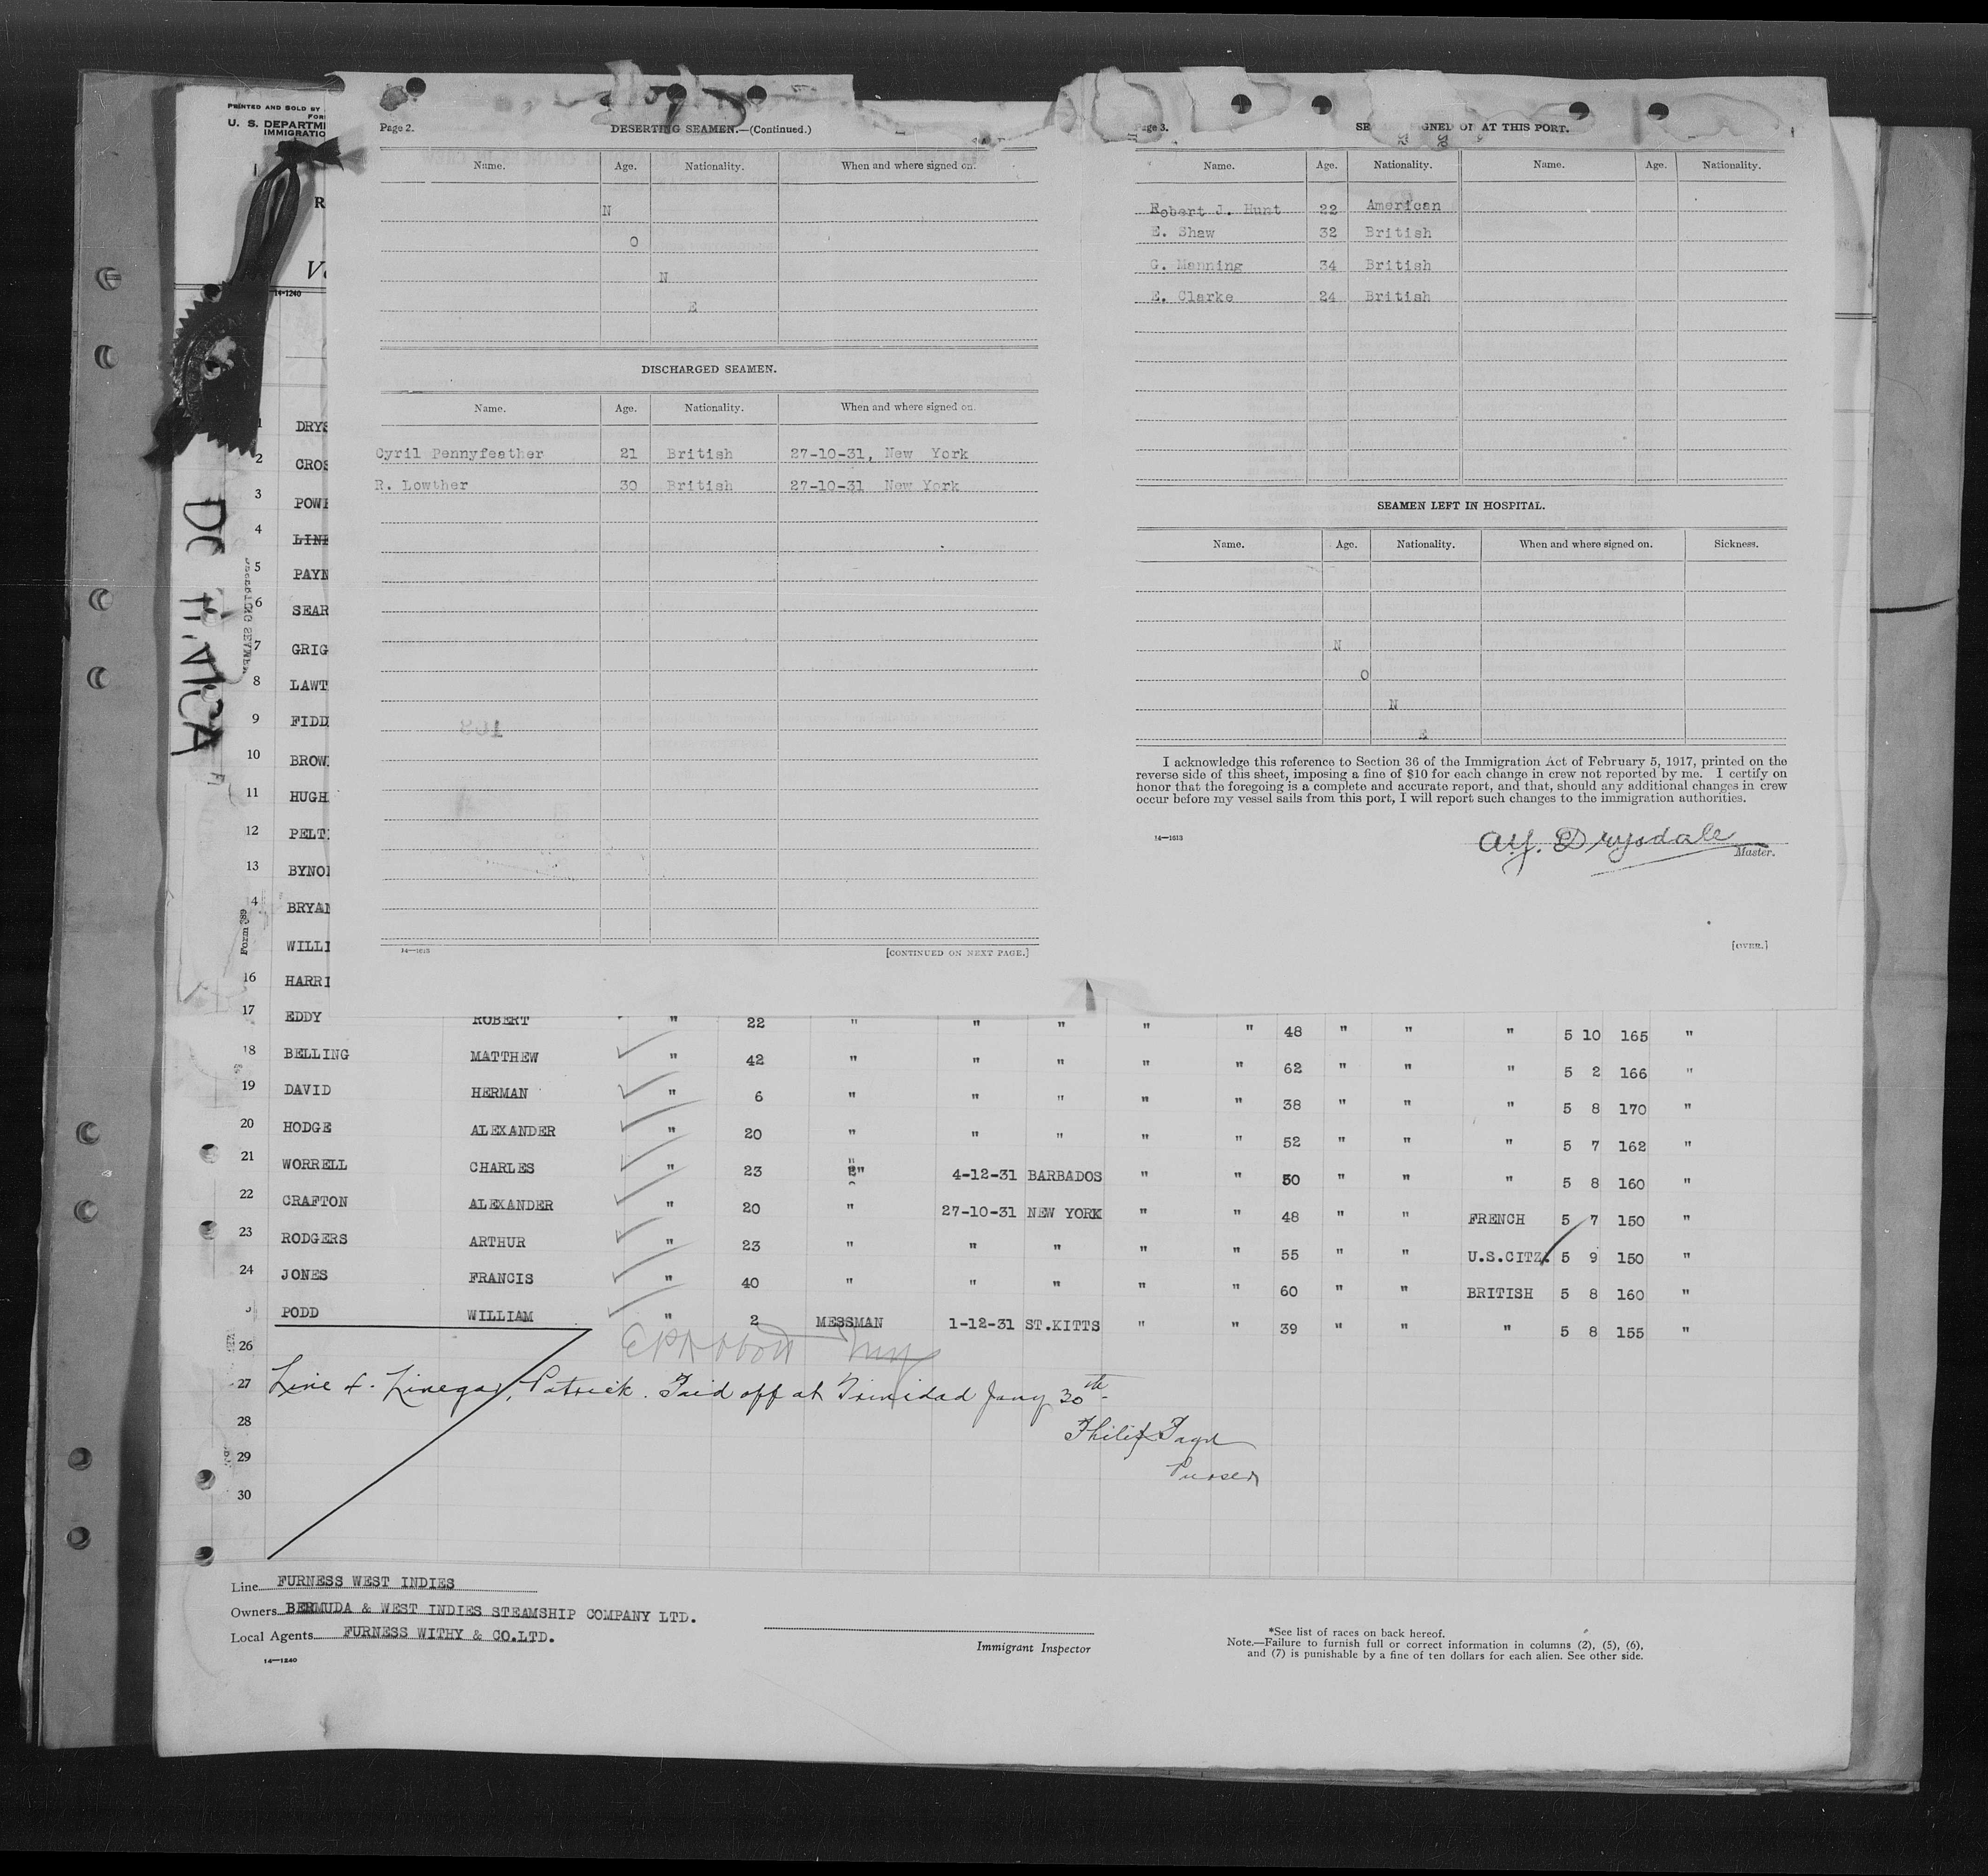 PRINTED AND SOLD BY
U. S. DEPARTM
IMMIGRATIO
14-1240
Page 2. DESERTING SEAMEN.—(Continued.)
Name. Age. Nationality. When and where signed on.
N
O
N
E
DISCHARGED SEAMEN.
Name. Age. Nationality. When and where signed on.
Cyril Pennyfeather 21 British 27-10-31, New York
R. Lowther 30 British 27-10-31 New York
14—1613 [CONTINUED ON NEXT PAGE.]
Page 3. AT THIS PORT.
Name. Age. Nationality. Name. Age. Nationality.
Robert J. Hunt 22 American
E. Shaw 32 British
G. Manning 34 British
E. Clarke 24 British
SEAMEN LEFT IN HOSPITAL.
Name. Age. Nationality. When and where signed on. Sickness.
N
O
N
E
I acknowledge this reference to Section 36 of the Immigration Act of February 5, 1917, printed on the
reverse side of this sheet, imposing a fine of $10 for each change in crew not reported by me. I certify on
honor that the foregoing is a complete and accurate report, and that, should any additional changes in crew
occur before my vessel sails from this port, I will report such changes to the immigration authorities.
14—1613
A.Y. Drysdale
Master.
[OVER.]
1 DRYS
2 CROS
3 POWE
4 LINE
5 PAYN
6 SEAR
7 GRIG
8 LAWT
9 FIDD
10 BROW
11 HUGH
12 PELT
13 BYNO
14 BRYAN
WILLI
16 HARRI
Form 689
17 EDDY ROBERT " 22 " " " " " 48 " " " 5 10 165 "
18 BELLING MATTHEW " 42 " " " " " 62 " " " 5 2 166 "
19 DAVID HERMAN " 6 " " " " " 38 " " " 5 8 170 "
20 HODGE ALEXANDER " 20 " " " " " 52 " " " 5 7 162 "
21 WORRELL CHARLES " 23 " 4-12-31 BARBADOS " " 50 " " " 5 8 160 "
22 CRAFTON ALEXANDER " 20 " 27-10-31 NEW YORK " " 48 " " FRENCH 5 7 150 "
23 RODGERS ARTHUR " 23 " " " " " 55 " " U.S.CITZ. 5 9 150 "
24 JONES FRANCIS " 40 " " " " " 60 " " BRITISH 5 8 160 "
PODD WILLIAM " 2 MESSMAN 1-12-31 ST.KITTS " " 39 " " " 5 8 155 "
26
27 Line 4. Linegar, Patrick. Paid off at Trinidad Jany 30th
28
29 Purser
30
Line FURNESS WEST INDIES
Owners BERMUDA & WEST INDIES STEAMSHIP COMPANY LTD.
Local Agents FURNESS WITHY & CO.LTD.
14—1240
Immigrant Inspector
*See list of races on back hereof.
Note.—Failure to furnish full or correct information in columns (2), (5), (6),
and (7) is punishable by a fine of ten dollars for each alien. See other side.